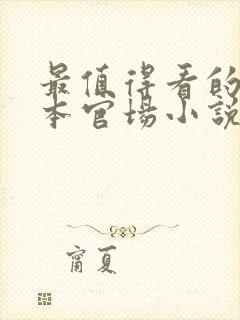 最值得看的
本官场小说
甯夏